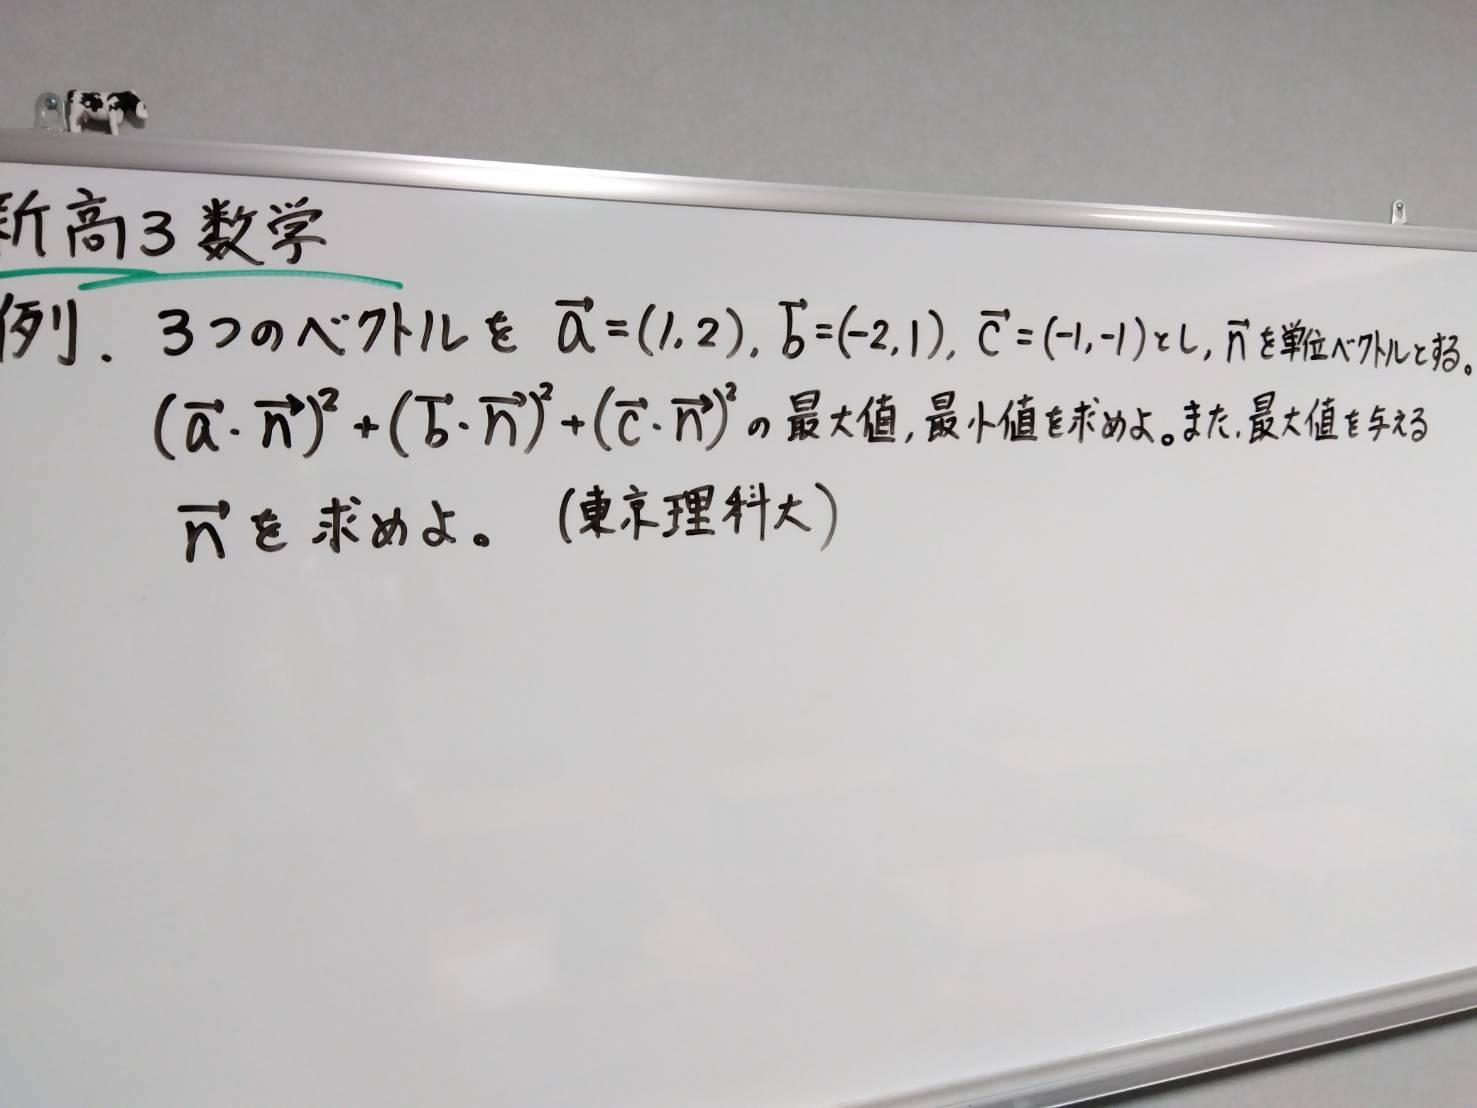 新高3数学
例. 3つのベクトルを a⃗=(1,2), b⃗=(-2,1), c⃗=(-1,-1)とし, n⃗を単位ベクトルとする。
(a⃗・n⃗)²+(b⃗・n⃗)²+(c⃗・n⃗)²の最大値,最小値を求めよ。また,最大値を与える
n⃗を求めよ。 (東京理科大)